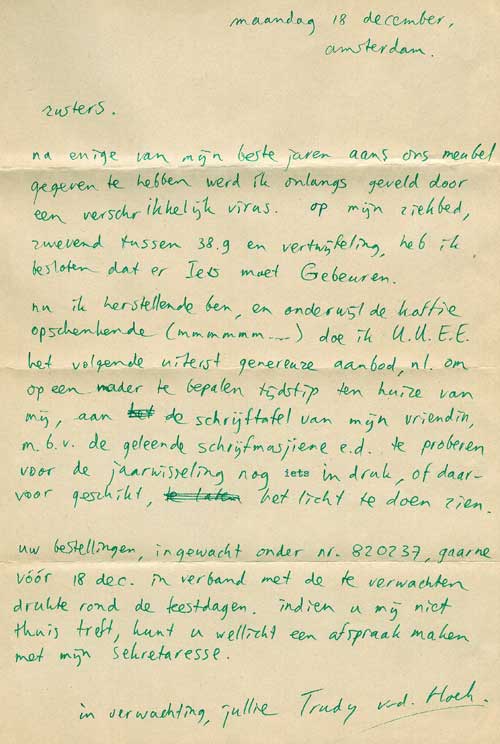 maandag 18 december,
amsterdam.
zusters.
na enige van mijn beste jaren aans ons meubel
gegeven te hebben werd ik onlangs geveld door
een verschrikkelijk virus. op mijn ziekbed,
zwevend tussen 38.9 en vertwijfeling, heb ik
besloten dat er Iets moet Gebeuren.
nu ik herstellende ben, en onderwijl de koffie
opschenkende (mmmmmm...) doe ik U.U.E.E.
het volgende uiterst genereuze aanbod, nl. om
op een nader te bepalen tijdstip ten huize van
mij, aan de schrijftafel van mijn vriendin,
m.b.v. de geleende schrijfmasjiene e.d. te proberen
voor de jaarwisseling nog iets in druk, of daar-
voor geschikt, te laten het licht te doen zien.
uw bestellingen, ingewacht onder nr. 820237, gaarne
vóór 18 dec. in verband met de te verwachten
drukte rond de feestdagen. indien u mij niet
thuis treft, kunt u wellicht een afspraak maken
met mijn sekretaresse.
in verwachting, jullie Trudy v.d. Hoek.